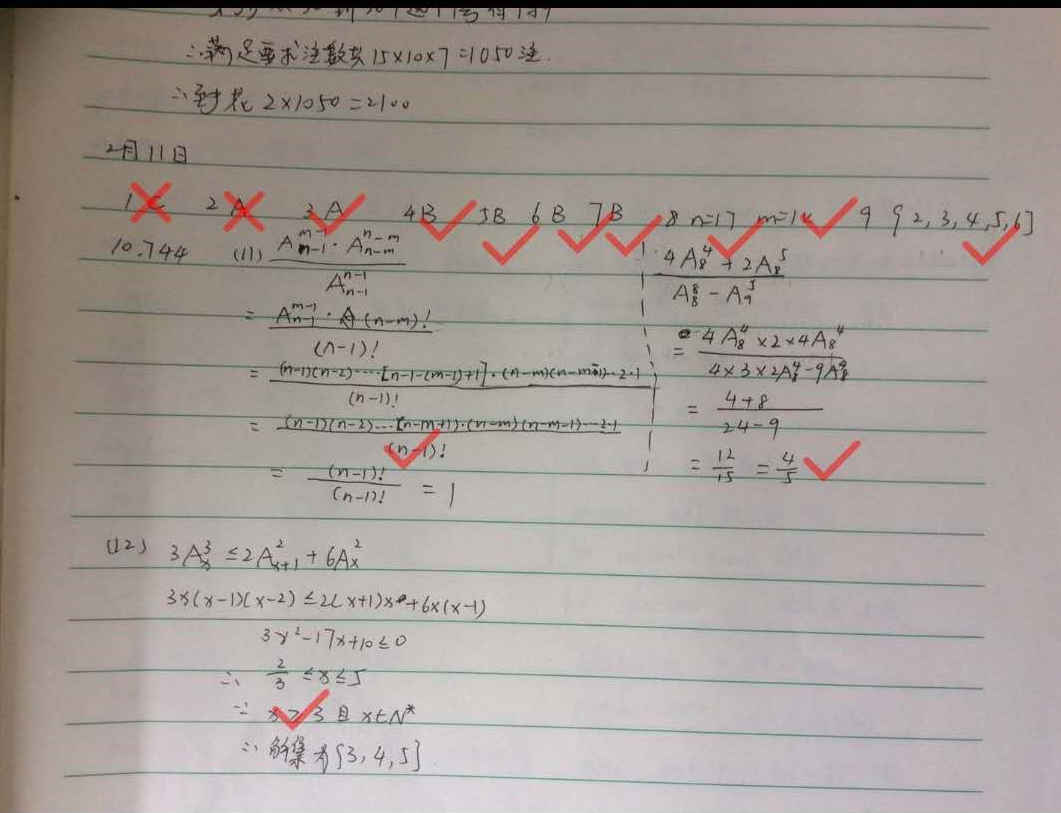 ∴满足要求注数共15×10×7=1050注.
∴至少花 2×1050=2100
2月11日
1 C 2 A 3 A 4B 5B 6 B 7 B 8 n=17 m=14 9 {2,3,4,5,6}
10.744 (11) A_{n-1}^{m-1}·A_{n-m}^{n-m} / A_{n-1}^{n-1}
= A_{n-1}^{m-1}·(n-m)! / (n-1)!
= (n-1)(n-2)····[n-1-(m-1)+1]·(n-m)(n-m-1)··2·1 / (n-1)!
= (n-1)(n-2)···[n-m+1)·(n-m)(n-m-1)···2·1 / (n-1)!
= (n-1)! / (n-1)! = 1
4A_8^4 + 2A_8^5 / A_8^8 - A_9^5
= 4A_8^4 × 2×4A_8^4 / 4×3×2A_8^4-9A_8^4
= 4+8 / 24-9
= 12/15 = 4/5
(12) 3A_x^3 ≤ 2A_{x+1}^2 + 6A_x^2
3x(x-1)(x-2) ≤ 2(x+1)x+6x(x-1)
3x²-17x+10≤0
∴ 2/3 ≤x≤5
∵ x≥3 且 x∈N*
∴ 解集为{3,4,5}